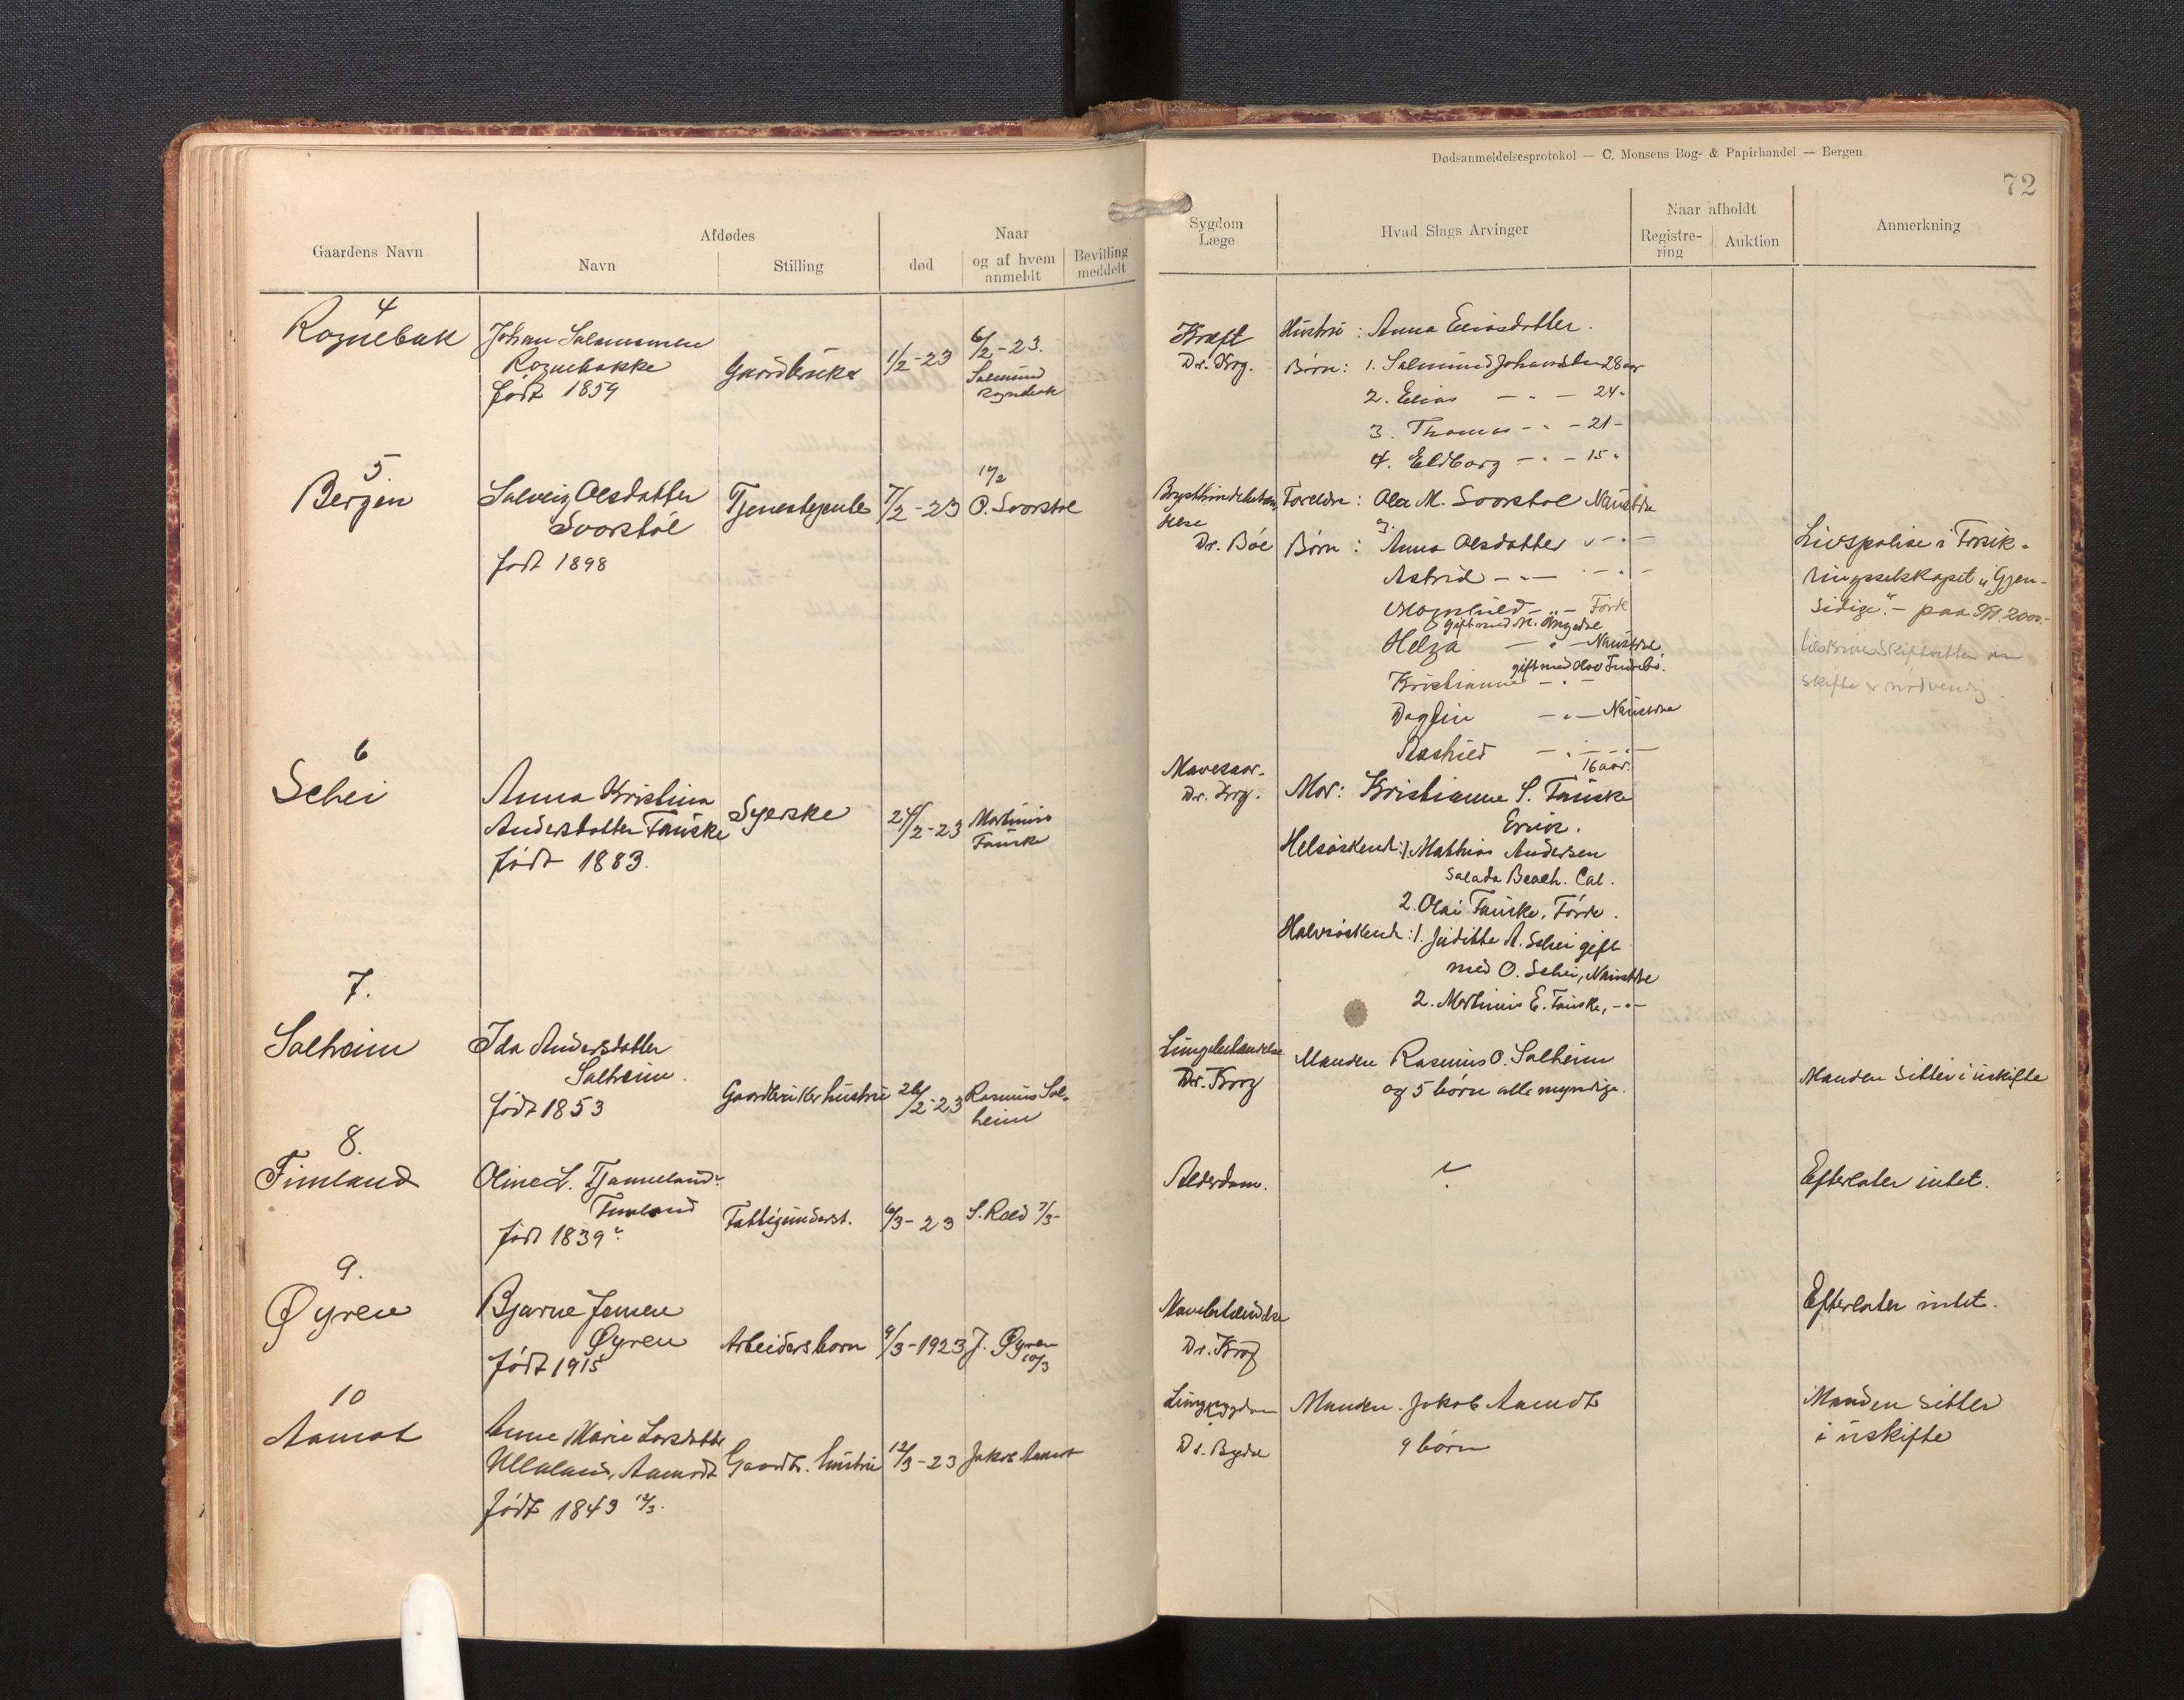 Dødsanmeldelsesprotokol — C. Monsens Bog- & Papirhandel — Bergen
72
Gaardens Navn
Afdødes
Navn
Stilling
død
Naar
og af hvem
anmeldt
Bevilling
meddelt
Sygdom
Læge
Hvad Slags Arvinger
Naar afholdt
Registre-
ring
Auktion
Anmerkning
4
Rognebak
Johan Salmunsen
Rognebakke
født 1859
Gaardbruker
1/2-23
6/2-23.
Salmund
Rognebak
Kræft
Dr. Krog.
Hustru: Anna Eliasdatter.
Børn: 1. Salmund Johansen 28 aar
2. Elias — " — 24 "
3. Thomas - " - 21 -
4. Eldborg - " - 15 "
5
Bergen
Solveig Olsdatter
Svorstøl
født 1898
Tjenestepike
7/2-23
O. Svorstøl
Dr. Böe
Foreldre: Ola M. Svorstøl Naustdal
Børn: Anna Olsdatter
Astrid
Førde
Helga — " — Naustdal
Kristianne
Dagfin — " — Naustdal
Aashild
16 aar.
Livspolise i Forsik-
ringsselskapet "Gjen-
sidige". — paa Kr. 2000.-
skifte er nødvendig.
6
Schei
Anna Kristina
Andersdatter Fauske
født 1883.
Syerske
24/2-23
Martinus
Fauske
Mavesaar.
Dr. Krog.
Mor: Kristianne S. Fauske
Enke.
Helsøskend: 1. Mathias Andersen
Salada Beach. Cal.
2. Olai Fauske, Førde.
Halvsøskend: 1. Juditte A. Schei gift
med O. Schei, Naustdal
2. Martinus E. Fauske, - " -
7.
Solheim
Ida Andersdatter
Solheim.
født 1853
Gaardbrukerhustru
26/2-23
Rasmus Sol-
heim
Lungebetændelse
Dr. Krog
Manden Rasmus O. Solheim
og 5 børn alle myndige.
Manden sitter i uskifte
8.
Fimland
Oline L.
Fimland
født 1839
Fattigunderst.
6/3-23
7/3-
Alderdom.
Efterlater intet.
9.
Øyren
Bjarne Jensen
Øyren
født 1915
Arbeidersbarn
9/3-1923
J. Øyren
10/3
Mavebetændelse
Dr. Krog
Efterlater intet.
10
Aamot
Anne Marie Larsdatter
Ullaland, Aamodt
født 1843
Gaardb. hustru
12/3-23
Jakob Aamot
Lungesygdom
Manden. Jakob Aamodt
9 børn
Manden sitter
i uskifte